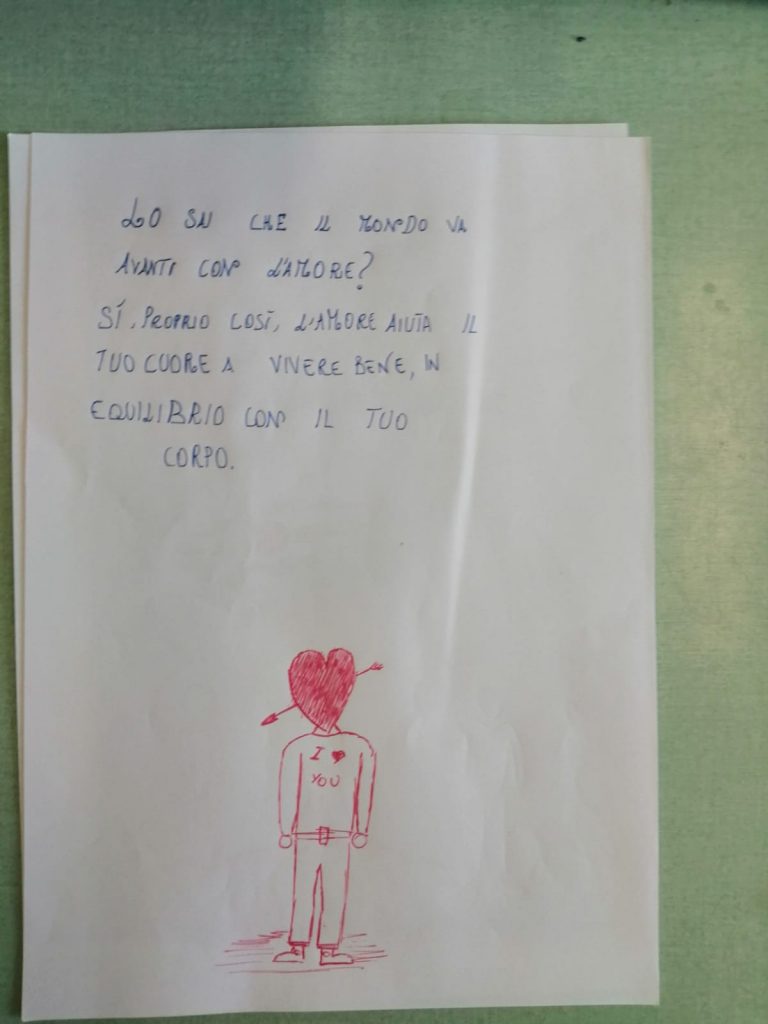 LO SAI CHE IL MONDO VA
AVANTI CON L'AMORE?
SÍ, PROPRIO COSÍ, L'AMORE AIUTA IL
TUO CUORE A VIVERE BENE, IN
EQUILIBRIO CON IL TUO
CORPO.
I ♥
YOU